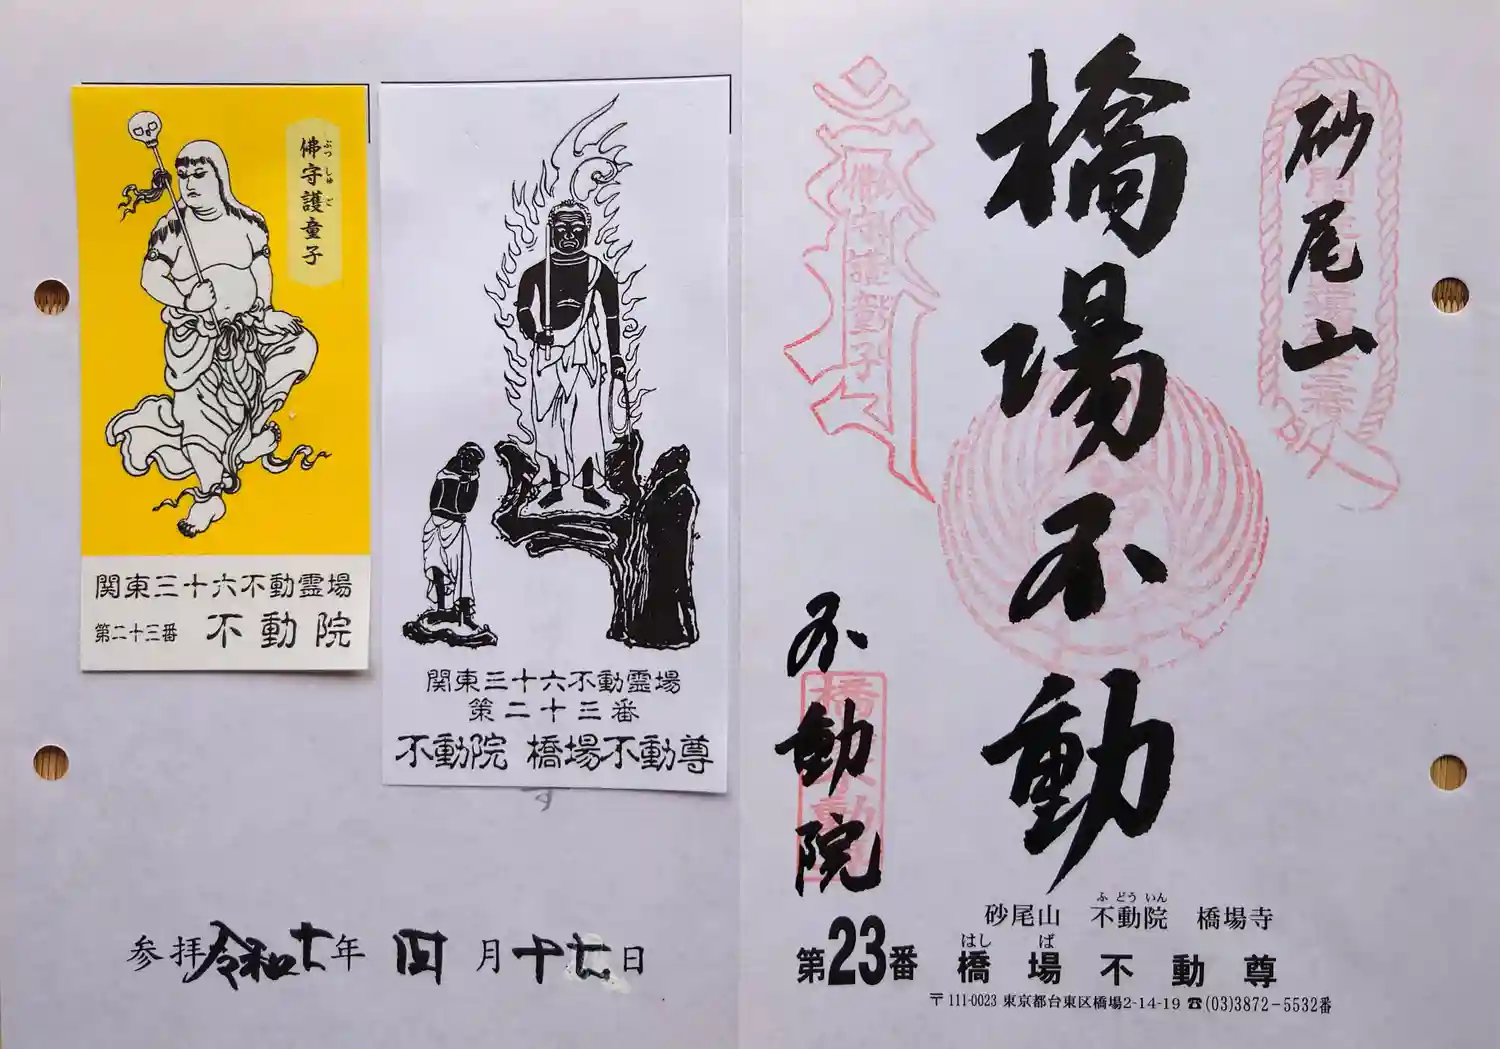 佛守護童子
ぶつしゅご
関東三十六不動霊場
第二十三番 不動院
関東三十六不動霊場
第二十三番
不動院 橋場不動尊
参拝令和七年 四月十七日
砂尾山
橋場不動
不動院
砂尾山 不動院 橋場寺
ふどういん
第23番 橋場不動尊
はしば
〒111-0023 東京都台東区橋場2-14-19 ☎(03)3872-5532番